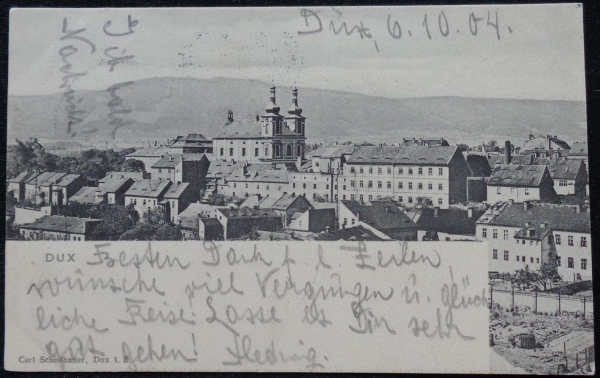 Dux, 6.10.04.
Ich bald
Nachricht!
DUX
Besten Dank f. l. Zeilen,
wünsche viel Vergnügen u. glück
liche Reise. Lasse es Dir sehr
gut gehen! Hedwig.
Carl Scheithauer, Dux i. B.